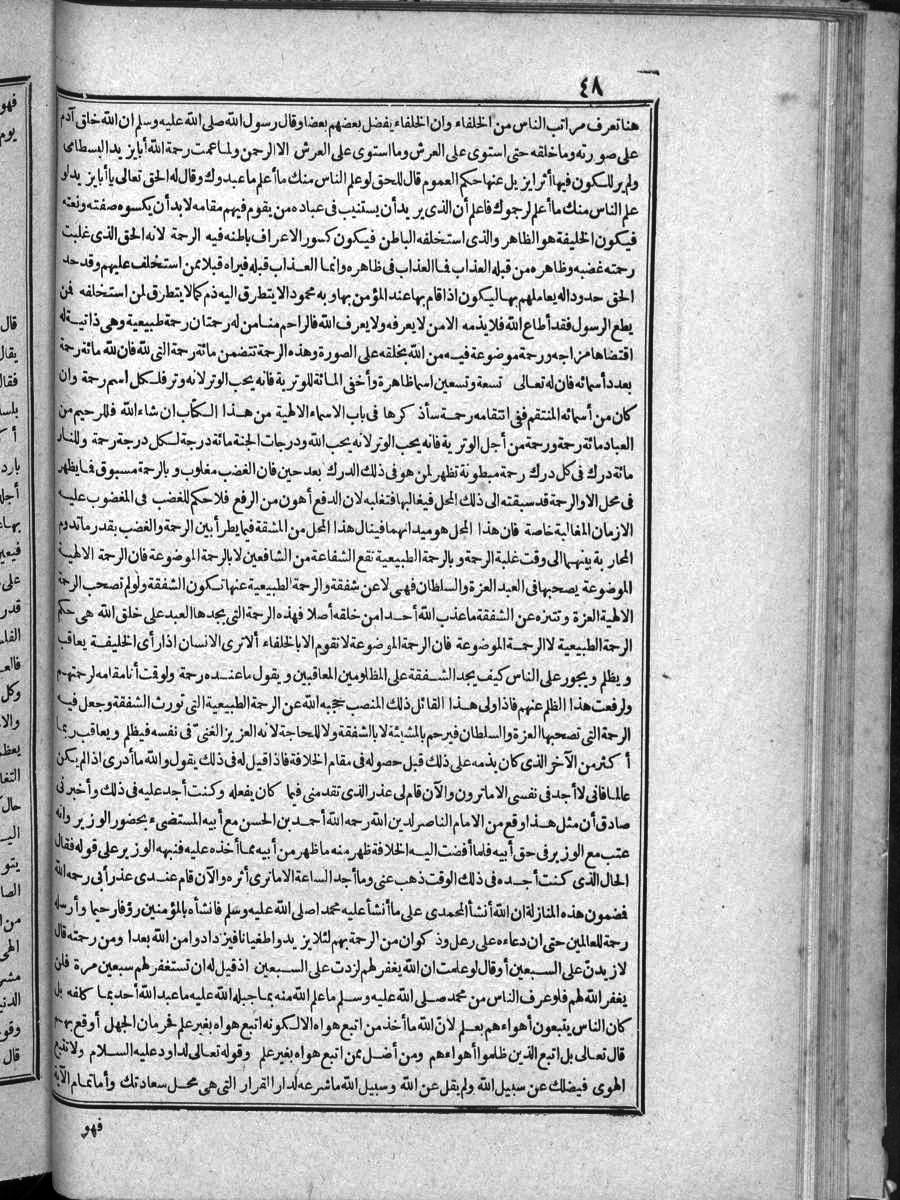 ٤٨
هنا تعرف مراتب الناس من الخلفاء وان الخلفاء يفضل بعضهم بعضا وقال رسول الله صلى الله عليه وسلم ان الله خلق آدم
على صورته وما خلقه حتى استوى على العرش وما استوى على العرش الا الرحمن ولما عمت رحمة الله أبا يزيد البسطامى
ولم ير للكون فيها أثرا يزيل عنها حكم العموم قال للحق لو علم الناس منك ما أعلم ما عبدوك وقال له الحق تعالى يا أبا يزيد لو
علم الناس منك ما أعلم لرجموك فاعلم أن الذى يريد أن يستنيب فى عباده من يقوم فيهم مقامه لا بد أن يكسوه صفته ونعته
فيكون الخليفة هو الظاهر والذى استخلفه الباطن فيكون كسور الاعراف باطنه فيه الرحمة لانه الحق الذى غلبت
رحمته غضبه وظاهره من قبله العذاب فما العذاب فى ظاهره وانما العذاب قبله فيراه قبلا ممن استخلف عليهم وقد حد
الحق حدودا له يعاملهم بها ليكون اذا قام بها عند المؤمن بها وبه محمودا لا يتطرق اليه ذم كما لا يتطرق لمن استخلفه فمن
يطع الرسول فقد أطاع الله فلا يذمه الا من لا يعرفه ولا يعرف الله فالراحم منا من له رحمتان رحمة طبيعية وهى ذاتية له
اقتضاها مزاجه ورحمة موضوعة فيه من الله بخلقه على الصورة وهذه الرحمة تتضمن مائة رحمة التى لله فان لله مائة رحمة
بعدد أسمائه فان له تعالى تسعة وتسعين اسما ظاهرة وأخفى المائة للوترية فانه يحب الوتر لانه وتر فلكل اسم رحمة وان
كان من أسمائه المنتقم ففى انتقامه رحمة سأذكرها فى باب الاسماء الالهية من هذا الكتاب ان شاء الله فللرحيم من
العباد مائة رحمة ورحمة من أجل الوترية فانه يحب الوتر لانه يحب الله ودرجات الجنة مائة درجة لكل درجة رحمة وللنار
مائة درك فى كل درك رحمة مبطونة تظهر لمن هو فى ذلك الدرك بعد حين فان الغضب مغلوب وبالرحمة مسبوق فما يظهر
فى محل الا والرحمة قد سبقته الى ذلك المحل فيغالبها فتغلبه لان الدفع أهون من الرفع فلا حكم للغضب فى المغضوب عليه
الا زمان المغالبة خاصة فان هذا المحل هو ميدانهما فينال هذا المحل من المشقة فيما يطرأ بين الرحمة والغضب بقدر ما تدوم
المحاربة بينهما الى وقت غلبة الرحمة وبالرحمة الطبيعية تقع الشفاعة من الشافعين لا بالرحمة الموضوعة فان الرحمة الالهية
الموضوعة يصحبها فى العبد العزة والسلطان فهى لا عن شفقة والرحمة الطبيعية عنها تكون الشفقة ولو لم تصحب الرحمة
الالهية العزة وتتنزه عن الشفقة ما عذب الله أحدا من خلقه أصلا فهذه الرحمة التى يجدها العبد على خلق الله هى حكم
الرحمة الطبيعية لا الرحمة الموضوعة فان الرحمة الموضوعة لا تقوم الا بالخلفاء ألا ترى الانسان اذا رأى الخليفة يعاقب
ويظلم ويجور على الناس كيف يجد الشفقة على المظلومين المعاقبين ويقول ما عنده رحمة ولو قت أنا مقامه لرحمتهم
ولرفعت هذا الظلم عنهم فاذا ولى هذا القائل ذلك المنصب حجبه الله عن الرحمة الطبيعية التى تورث الشفقة وجعل فيه
الرحمة التى تصحبها العزة والسلطان فيرحم بالمشيئة لا بالشفقة ولا للحاجة لانه العزيز الغنىّ فى نفسه فيظلم ويعاقب ربما
أكثر من الآخر الذى كان يذمه على ذلك قبل حصوله فى مقام الخلافة فاذا قيل له فى ذلك يقول والله ما أدرى اذا لم يكن
عالما فانى لا أجد فى نفسى الا ما ترون والآن قام لى عذر الذى تقدمنى فيما كان يفعله وكنت أجد عليه فى ذلك وأخبرنى
صادق أن مثل هذا وقع من الامام الناصر لدين الله رحمه الله أحمد بن الحسن مع أبيه المستضىء بحضور الوزير وانه
عتب مع الوزير فى حق أبيه فلما أفضت اليه الخلافة ظهر منه ما ظهر من أبيه مما أخذه عليه فنبهه الوزير على قوله فقال
الحال الذى كنت أجده فى ذلك الوقت ذهب عنى وما أجد الساعة الا ما ترى أثره والآن قام عندى عذر أبى رحمه الله
فضمون هذه المنازلة ان الله أنشأ المحمدى على ما أنشأ عليه محمدا صلى الله عليه وسلم فانشأه بالمؤمنين رؤفا رحيما وأرسله
رحمة للعالمين حتى ان دعاءه على رعل وذكوان من الرحمة بهم لئلا يزيدوا طغيانا فيزدادوا من الله بعدا ومن رحمته قال
لازيدنّ على السبعين أو قال لو علمت ان الله يغفر لهم لزدت على السبعين اذ قيل له ان تستغفر لهم سبعين مرة فلن
يغفر الله لهم فلو عرف الناس من محمد صلى الله عليه وسلم ما علم الله منه بما جبله الله عليه ما عبد الله أحد بما كلفه بل
كان الناس يتبعون أهواءهم بعلم لانّ الله ما أخذ من اتبع هواه الا لكونه اتبع هواه بغير علم فحرمان الجهل أوقع بهم
قال تعالى بل اتبع الذين ظلموا أهواءهم ومن أضل ممن اتبع هواه بغير علم وقوله تعالى لداود عليه السلام ولا تتبع
الهوى فيضلك عن سبيل الله ولم يقل عن الله وسبيل الله ما شرعه لدار القرار التى هى محل سعادتك وأما تمام الآية
فهو